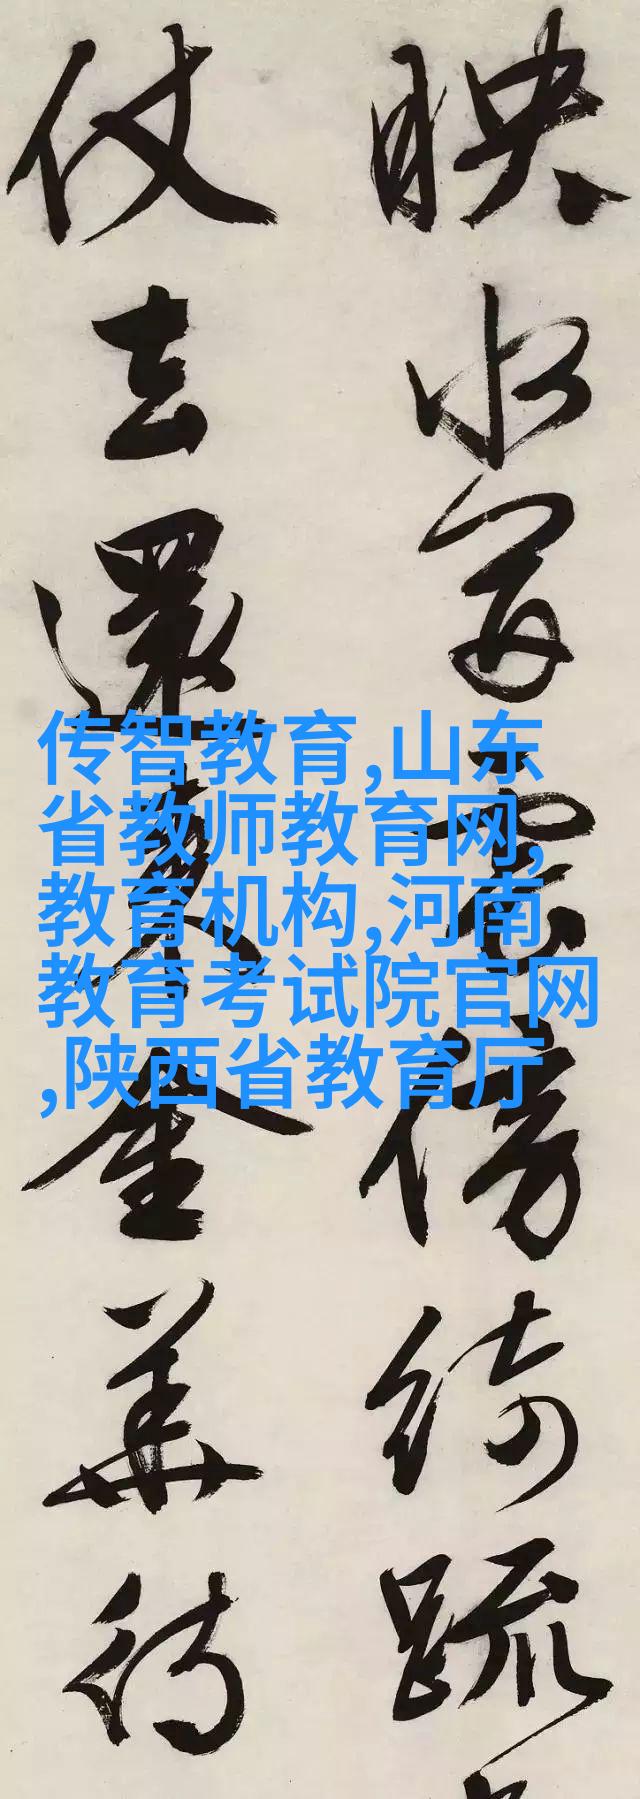 映水傍綺疏
仗去還來金華
传智教育,山东
省教师教育网,
教育机构,河南
教育考试院官网
,陕西省教育厅